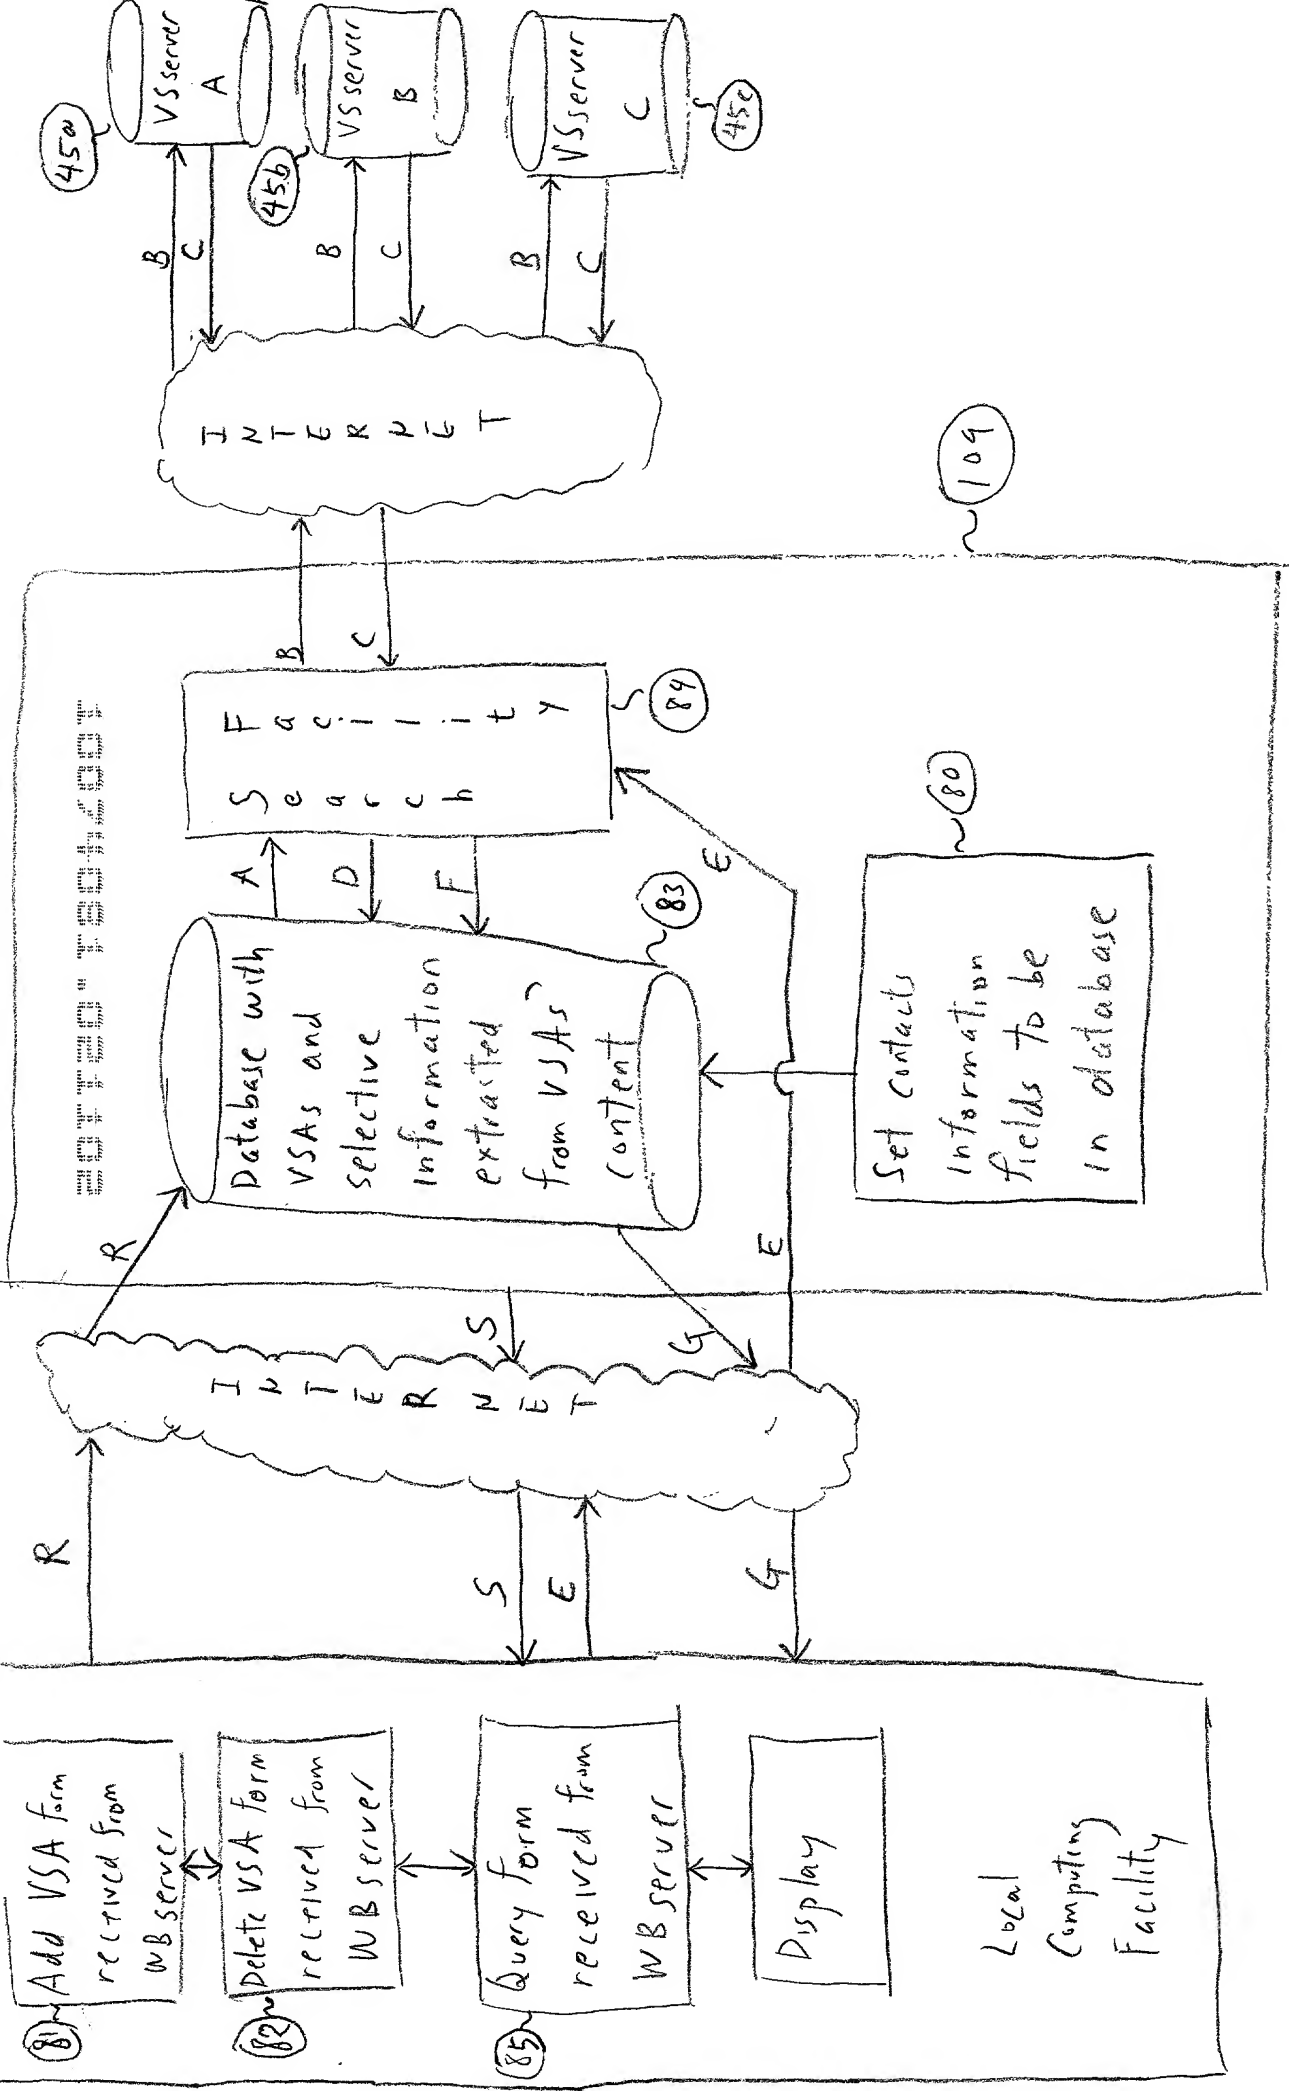 81
Add VSA form
received from
WBserver
82
Delete VSA form
received from
WBserver
85
Query form
received from
WBserver
Display
Local
Computing
Facility
R
S
E
G
INTERNET
R
S
G
E
10074081.021102
Database with
VSAs and
selective
Information
extracted
from VSAs'
content
83
Set contacts
Information
fields to be
in database
80
A
D
F
E
Search
Facility
84
B
C
109
INTERNET
B
C
B
C
B
C
45a
VSserver
A
45b
VSserver
B
VSserver
C
45c